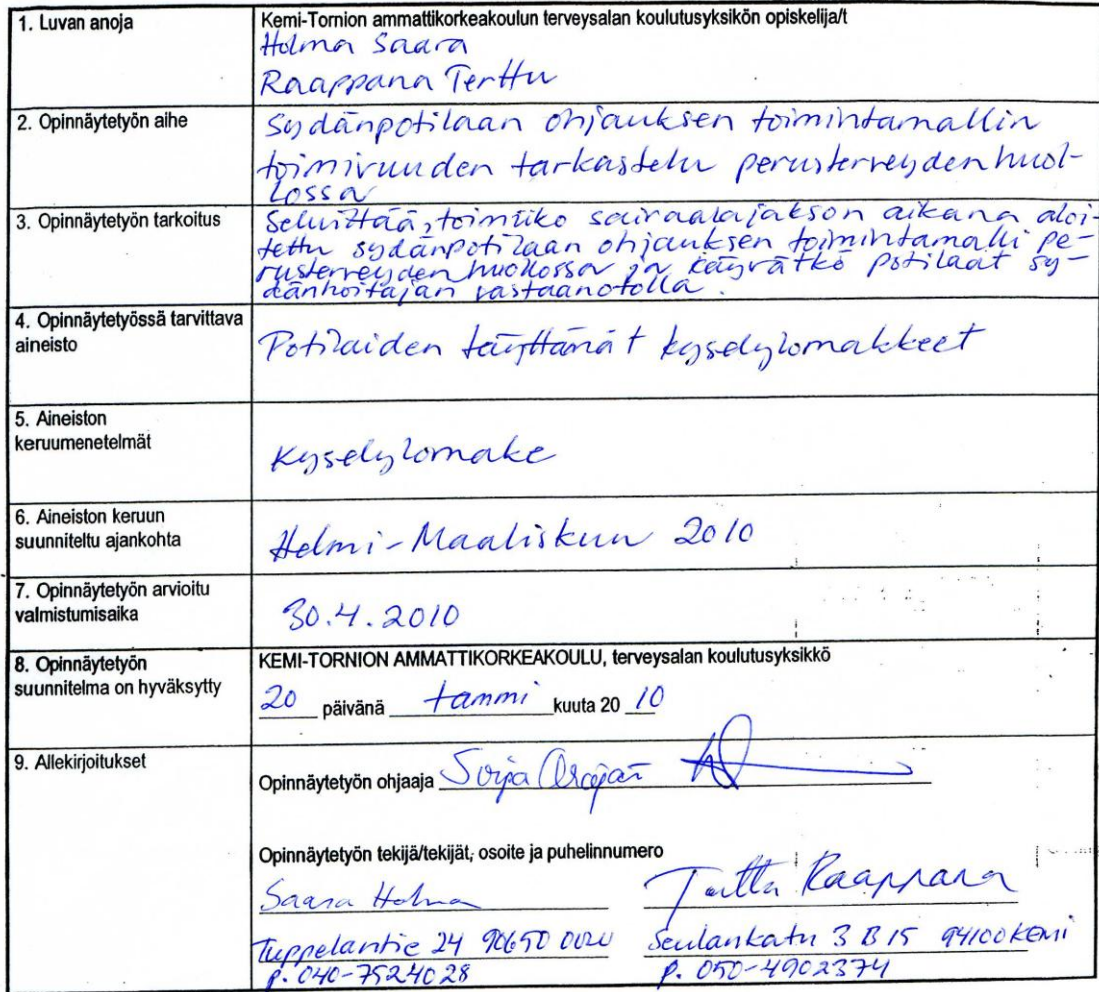 1. Luvan anoja
Kemi-Tornion ammattikorkeakoulun terveysalan koulutusyksikön opiskelija/t
Holma Saara
Raappana Terttu
2. Opinnäytetyön aihe
Sydänpotilaan ohjauksen toimintamallin
toimivuuden tarkastelu perusterveydenhuol-
lossa
3. Opinnäytetyön tarkoitus
Selvittää, toimiiko sairaalajakson aikana aloi-
tettu sydänpotilaan ohjauksen toimintamalli pe-
rusterveydenhuollossa ja käyvätkö potilaat sy-
dänhoitajan vastaanotolla.
4. Opinnäytetyössä tarvittava
aineisto
Potilaiden täyttämät kyselylomakkeet
5. Aineiston
keruumenetelmät
Kyselylomake
6. Aineiston keruun
suunniteltu ajankohta
Helmi-Maaliskuu 2010
7. Opinnäytetyön arvioitu
valmistumisaika
30.4.2010
8. Opinnäytetyön
suunnitelma on hyväksytty
KEMI-TORNION AMMATTIKORKEAKOULU, terveysalan koulutusyksikkö
20 päivänä tammi kuuta 20 10
9. Allekirjoitukset
Opinnäytetyön ohjaaja
Opinnäytetyön tekijä/tekijät, osoite ja puhelinnumero
Saara Holma Terttu Raappana
Tuppelantie 24 90650 OULU Seulankatu 3 B 15 94100 KEMI
p. 040-7524028 p. 050-4902374